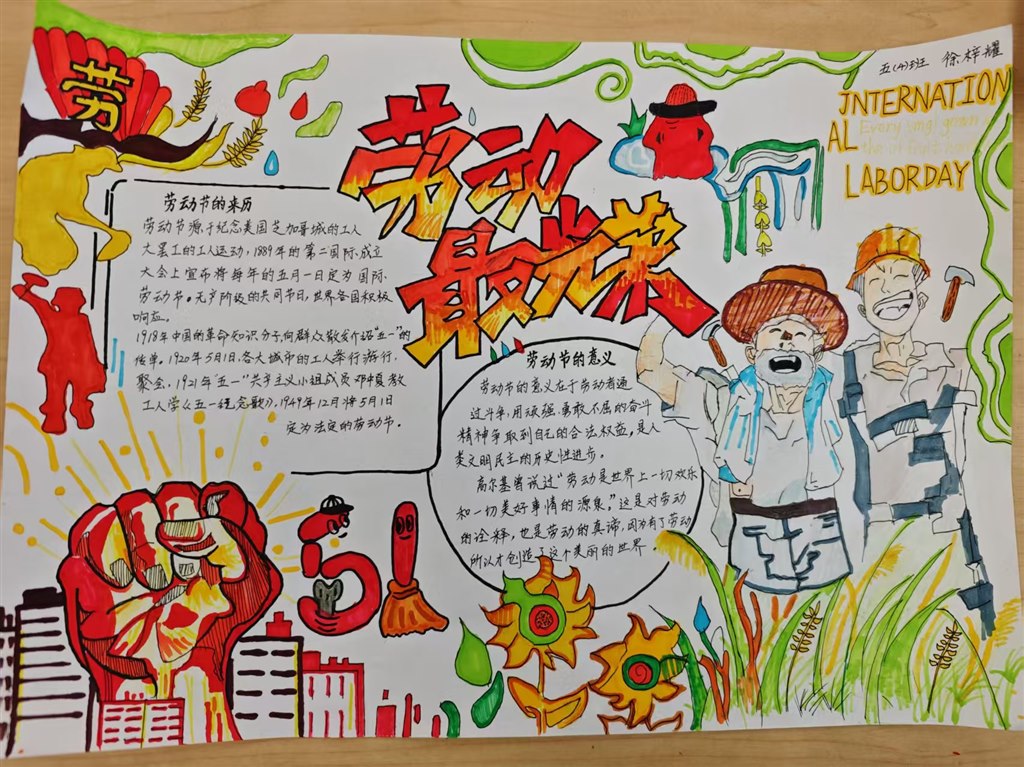 五(4)班 徐梓耀
劳
劳动
最光荣
INTERNATION
AL
LABORDAY
劳动节的来历
劳动节源于纪念美国芝加哥城的工人
大罢工的工人运动,1889年的第二国际成立
大会上宣布将每年的五月一日定为国际
劳动节。无产阶级的共同节日,世界各国积极
响应。
1918年中国的革命知识分子向群众散发介绍“五一”的
传单。1920年5月1日,各大城市的工人举行游行,
聚会,1921年“五一”共产主义小组成员邓中夏教
工人学《五一纪念歌》,1949年12月将5月1日
定为法定的劳动节。
劳动节的意义
劳动节的意义在于劳动者通
过斗争,用顽强、勇敢不屈的奋斗
精神争取到自己的合法权益。是人
类文明民主的历史性进步。
高尔基曾说过“劳动是世界上一切欢乐
和一切美好事情的源泉。”这是对劳动
的诠释,也是劳动的真谛,因为有了劳动
所以才创造了这个美丽的世界。
51